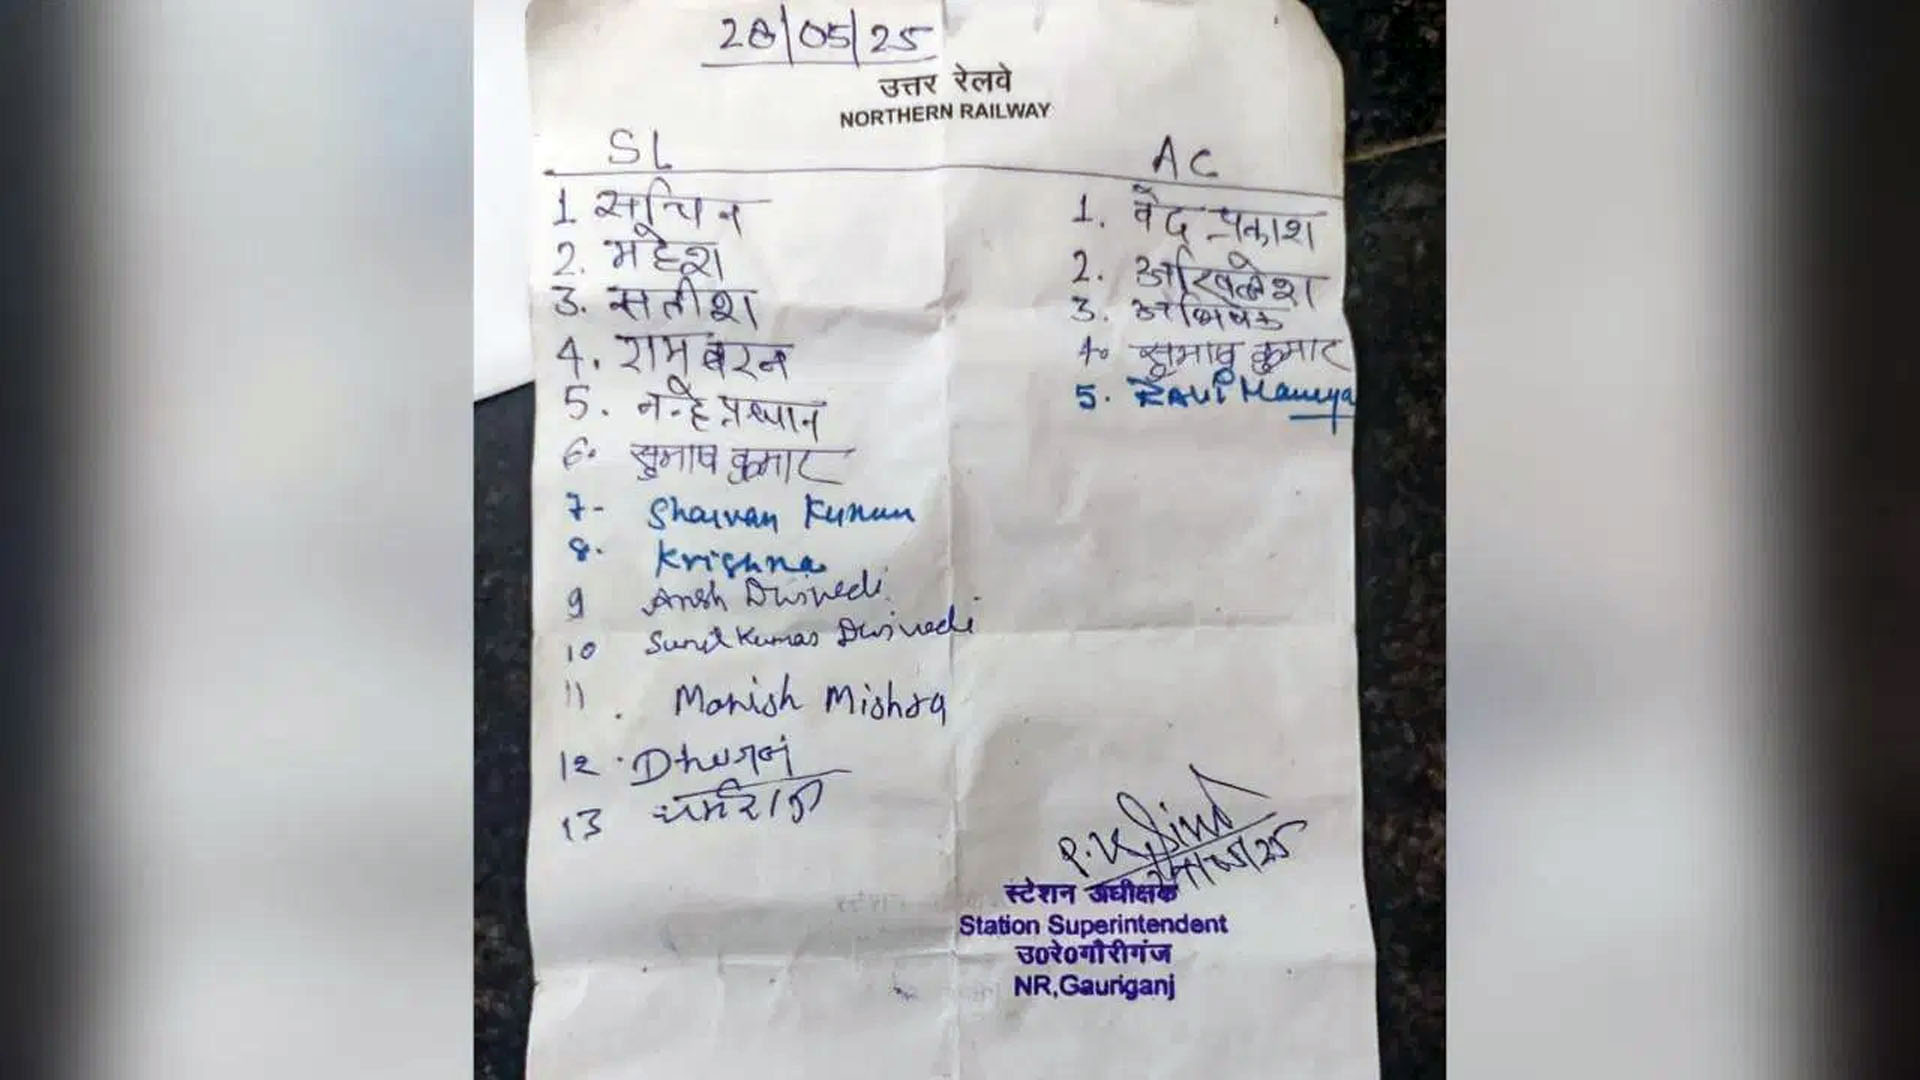 28/05/25
उत्तर रेलवे
NORTHERN RAILWAY
SL
1 सचिन
2. महेश
3. सतीश
4. राम बरन
5. नन्हे प्रधान
6. सुभाष कुमार
7- Sharvan Kumar
8. Krishna
9 Ansh Dwivedi
10 Sunil Kumar Dwivedi
11. Manish Mishra
12.
13 धर्मराज
AC
1. वेद प्रकाश
2. अखिलेश
3. अभिषेक
4. सुभाष कुमार
5. Ravi Maurya
स्टेशन अधीक्षक
Station Superintendent
उ०रे०गौरीगंज
NR,Gauriganj